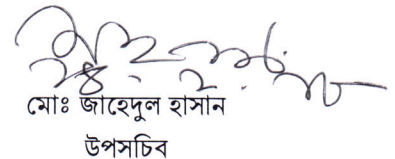 মোঃ জাহেদুল হাসান
উপসচিব